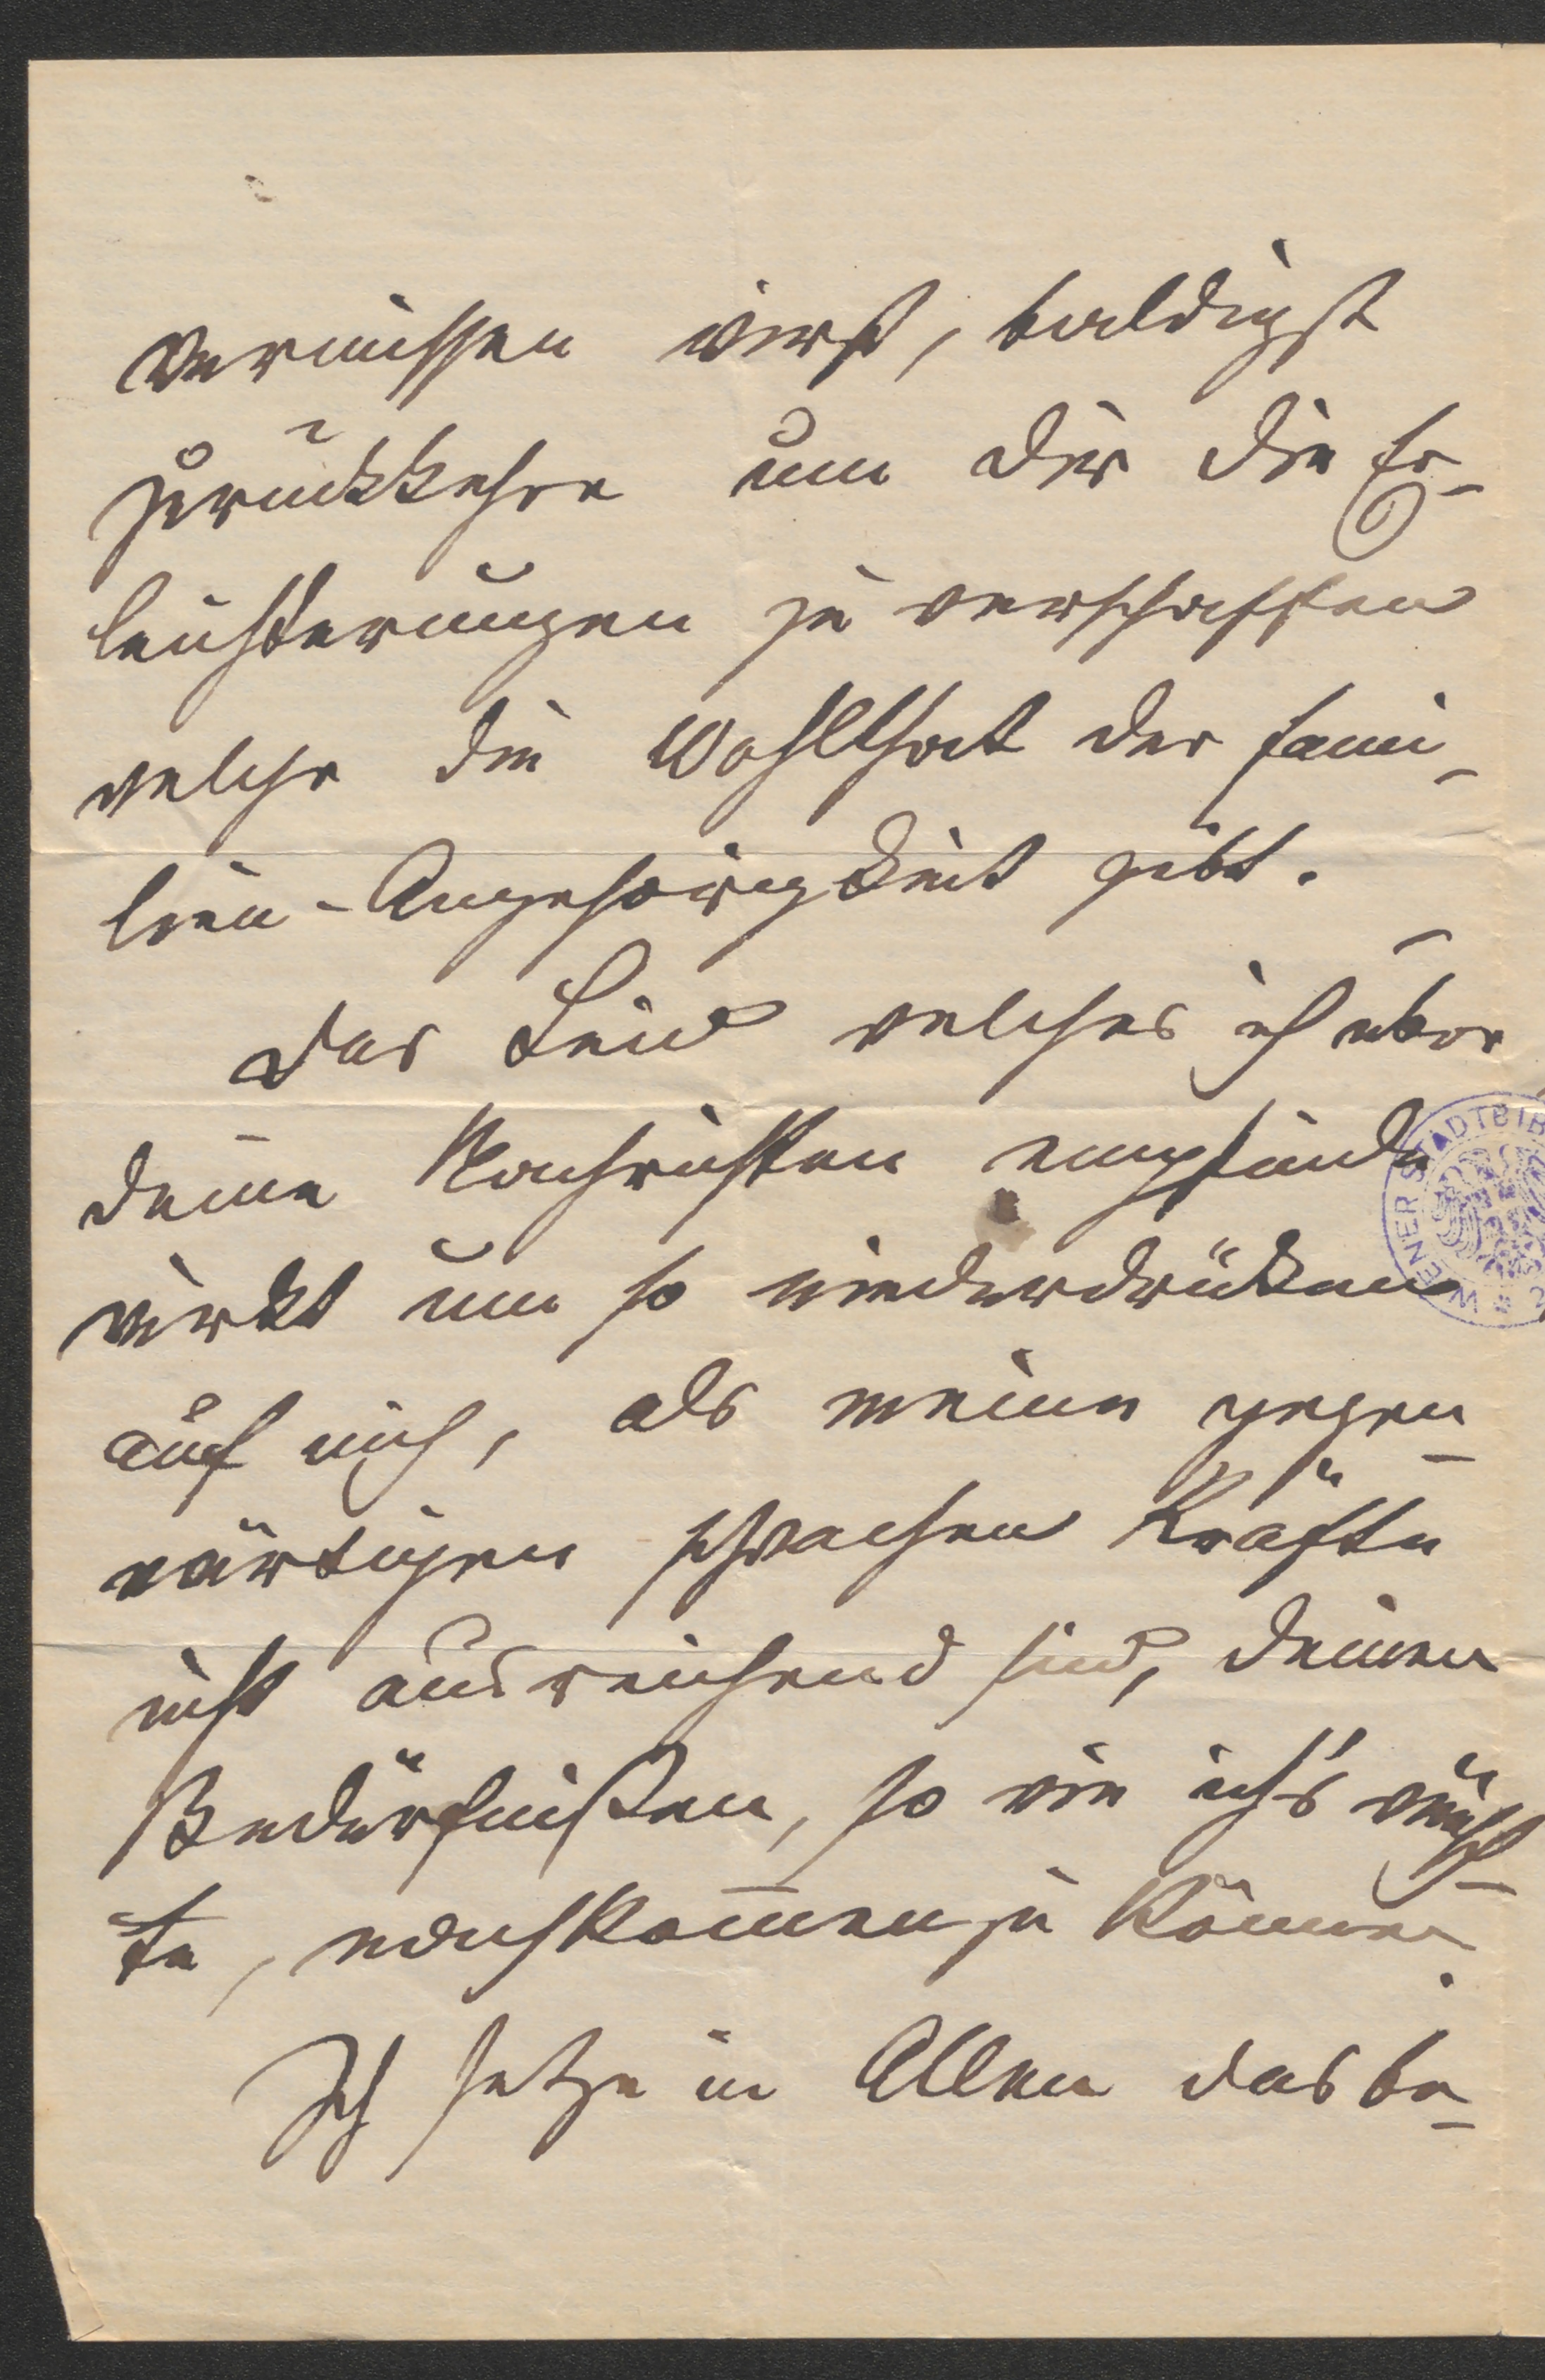 vermissen wirst, baldigst
zurückkehre um dir die Er-
leichterungen zu verschaffen
welche die Wohlthat der Fami-
lien-Angehörigkeit gibt.
Das Leid welches ich über
deine Nachrichten empfinde
wirkt um so niederdrückend
auf mich, als meine gegen-
wärtigen schwachen Kräfte
nicht ausreichend sind, deinen
Bedürfnißen, so wie ich's möch-
te, nachkommen zu können.
Ich setze in Allem das be-
WIENER STADTBIB